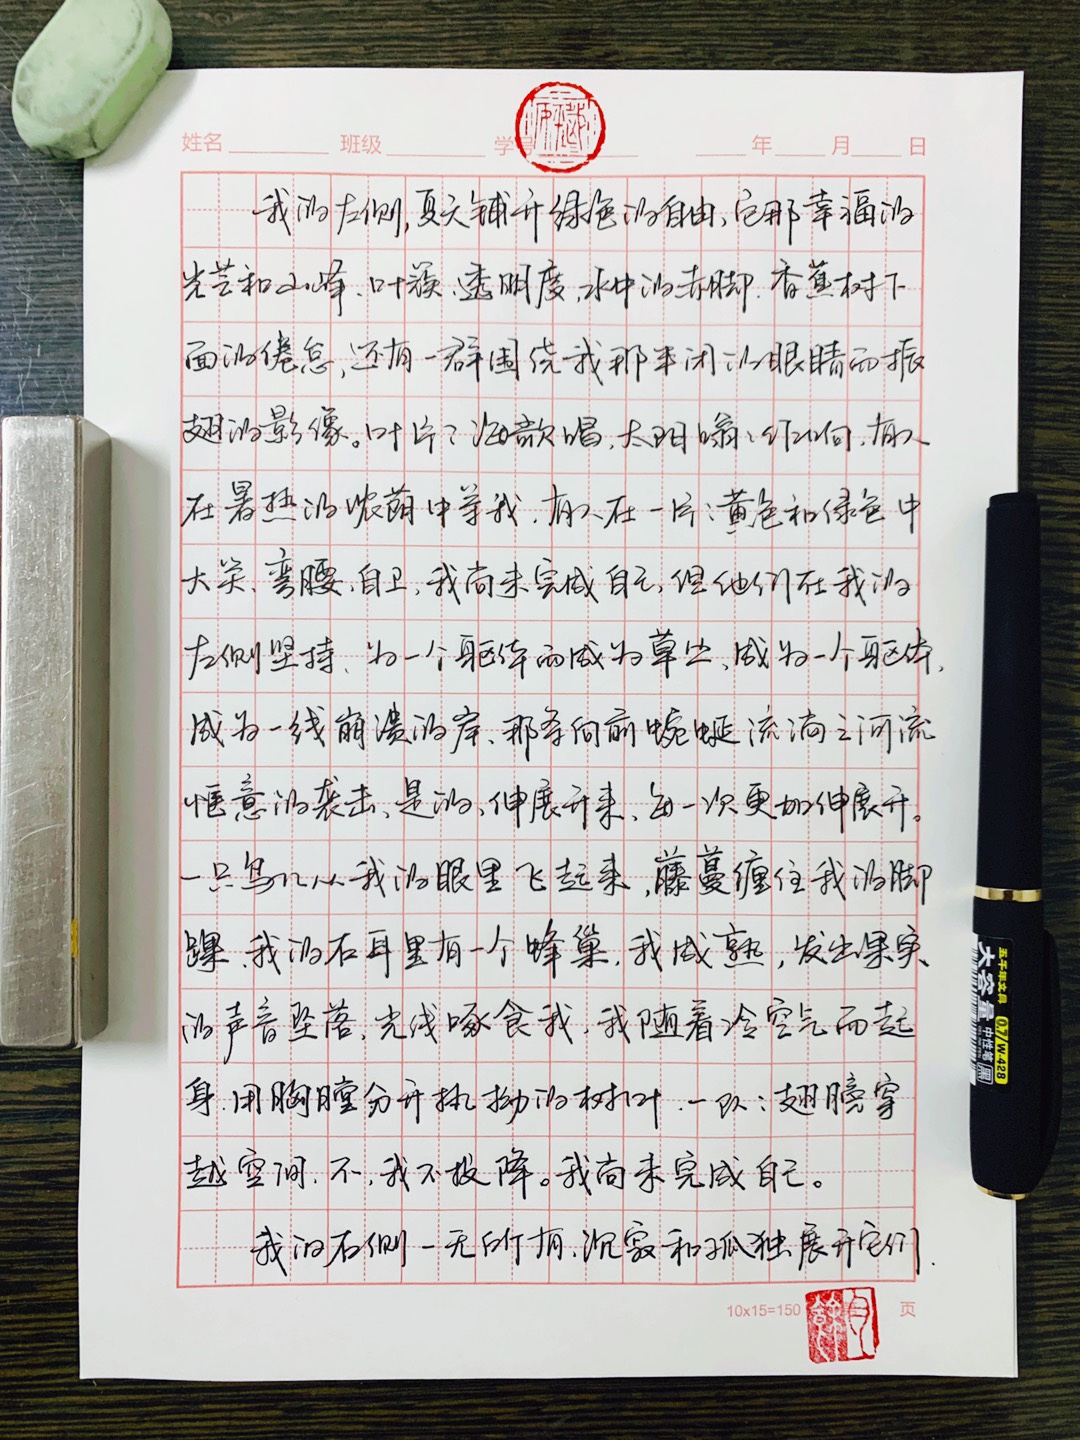 姓名 班级 学号 年 月 日
我的左侧,夏天铺开绿色的自由,它那幸福的
光芒和山峰、叶簇、透明度,水中的赤脚、香蕉树下
面的倦怠,还有一群围绕我那半闭的眼睛而振
翅的影像。叶片之海歌唱,太阳嗡
在暑热的浓荫中等我,有人在一片黄色和绿色中
大笑、弯腰、自卫,我尚未完成自己,但他们在我的
左侧坚持、为一个躯体而成为草丛,成为一个躯体,
成为一线崩溃的岸、那条向前蜿蜒流淌之河流
惬意的袭击、是的、伸展开来、每一次更加伸展开。
一只鸟儿从我的眼里飞起来,藤蔓缠住我的脚
踝、我的右耳里有一个蜂巢,我成熟,发出果实
的声音坠落,光线啄食我,我随着冷空气而起
身,用胸膛分开执拗的树叶,一队翅膀穿
越空间,不,我不投降。我尚未完成自己。
我的右侧一无所有,沉寂和孤独展开它们
10x15=150 页
五千年文具
大容量
0.7/W-428
中性笔 黑